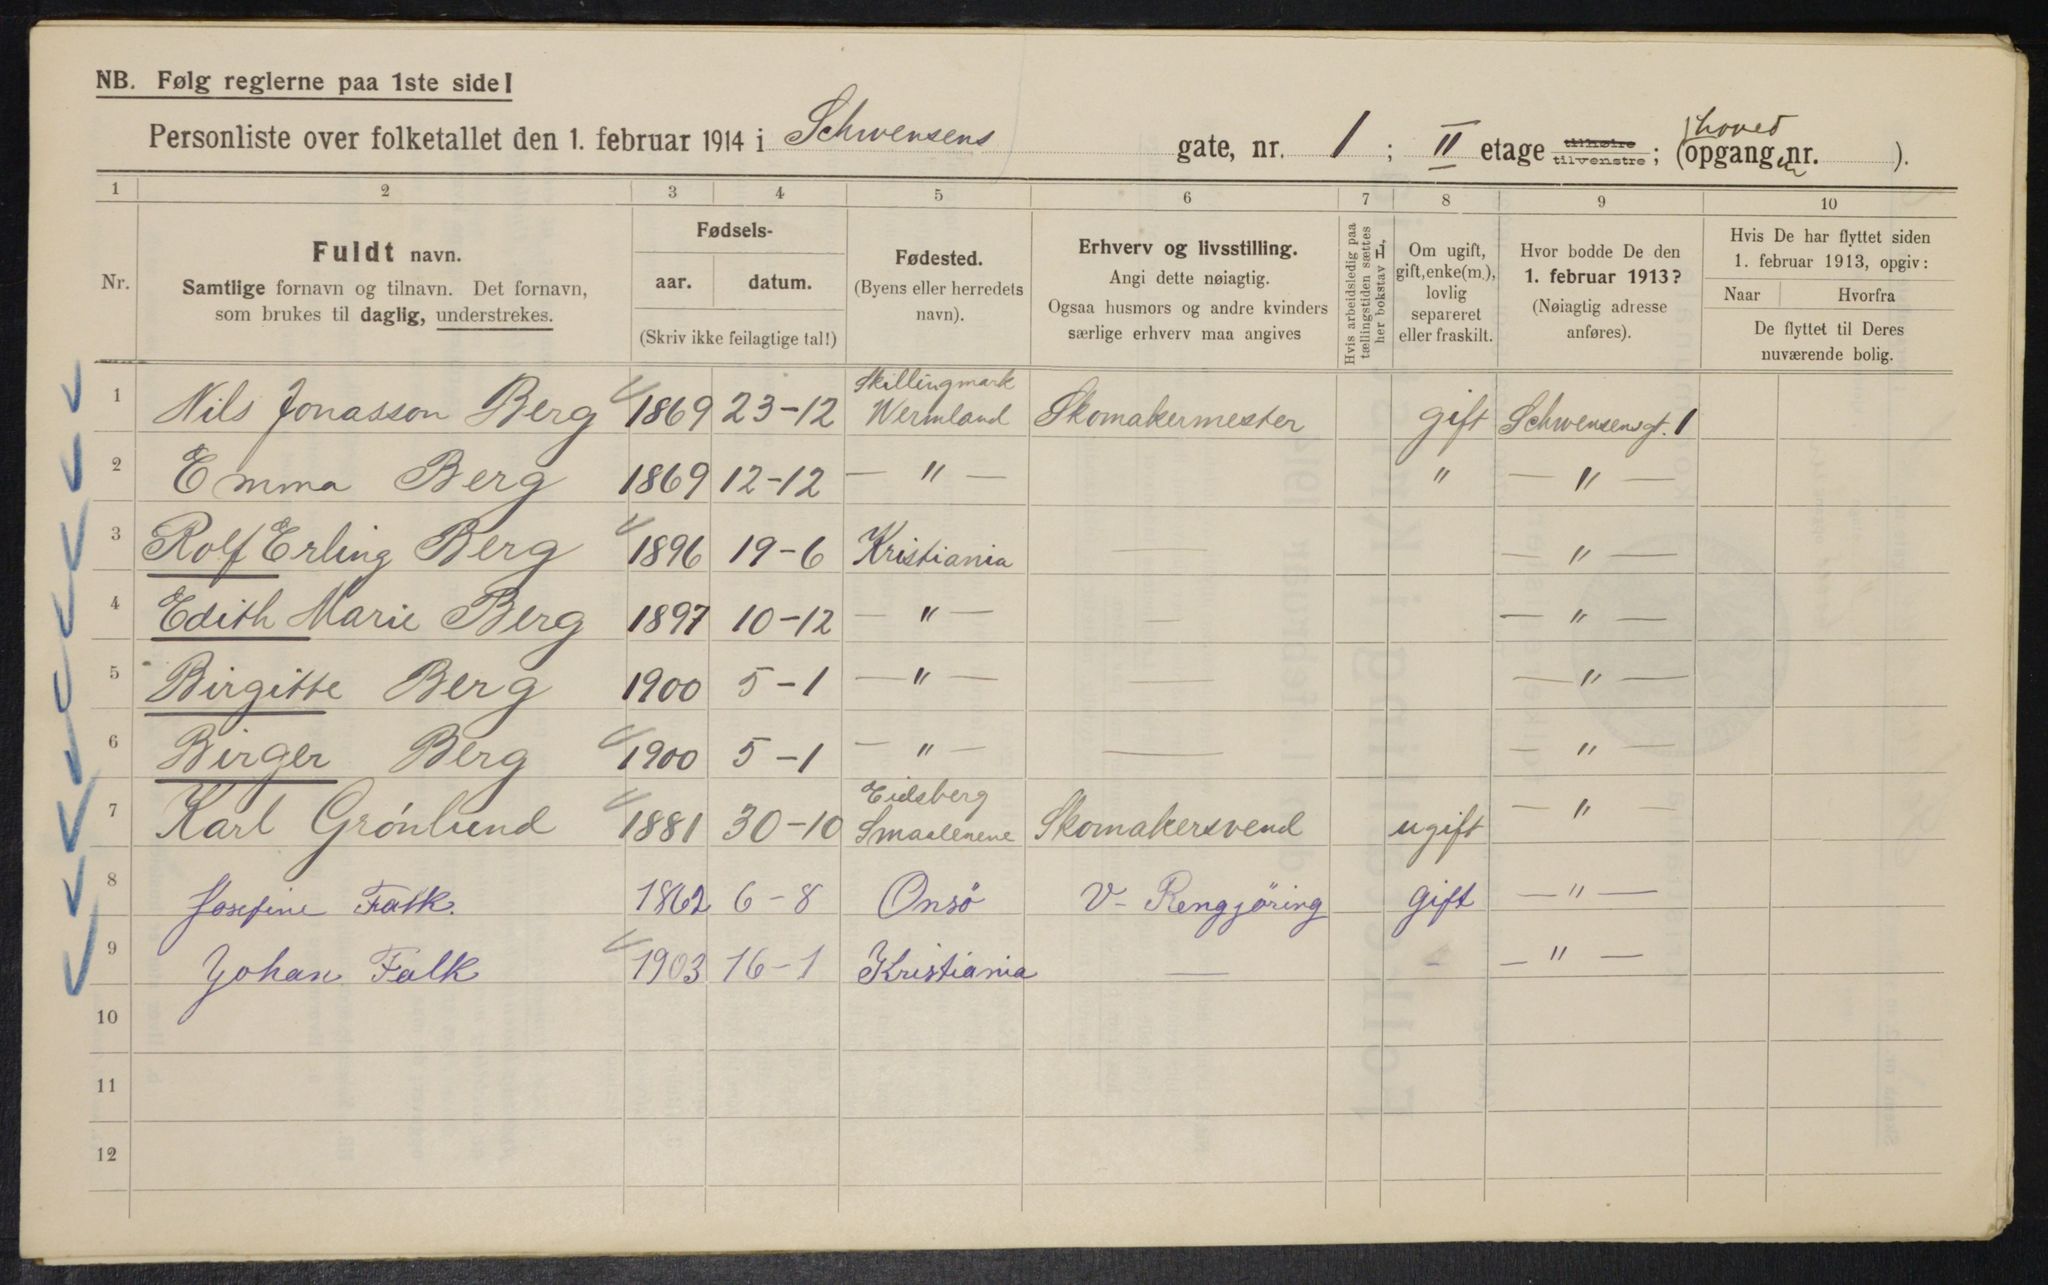 NB. Følg reglerne paa 1ste side!
Personliste over folketallet den 1. februar 1914 i Schwensens gate, nr. 1 ; II etage tilhøire tilvenstre ; (hoved opgangen nr. ).
1 2 3 4 5 6 7 8 9 10
Nr.
Fuldt navn.
Samtlige fornavn og tilnavn. Det fornavn,
som brukes til daglig, understrekes.
Fødsels-
aar. datum.
(Skriv ikke feilagtige tal!)
Fødested.
(Byens eller herredets
navn).
Erhverv og livsstilling.
Angi dette nøiagtig.
Ogsaa husmors og andre kvinders
særlige erhverv maa angives
Hvis arbeidsledig paa
tællingstiden sættes
her bokstav L.
Om ugift,
gift, enke(m.),
lovlig
separeret
eller fraskilt.
Hvor bodde De den
1. februar 1913?
(Nøiagtig adresse
anføres).
Hvis De har flyttet siden
1. februar 1913, opgiv:
Naar Hvorfra
De flyttet til Deres
nuværende bolig.
1 Nils Jonasson Berg 1869 23-12 Skillingmark Wermland Skomakermester gift Schwensensgt. 1
2 Emma Berg 1869 12-12 — " — " — " —
3 Rolf Erling Berg 1896 19-6 Kristiania — — " —
4 Edith Marie Berg 1897 10-12 — " — — — " —
5 Birgitte Berg 1900 5-1 — " — — — " —
6 Birger Berg 1900 5-1 — " — — — " —
7 Karl Grönlund 1881 30-10 Eidsberg Smaalenene Skomakersvend ugift — " —
8 Josefine Falk. 1862 6-8 Onsö V- Rengjöring gift — " —
9 Johan Falk 1903 16-1 Kristiania — - — " —
10
11
12